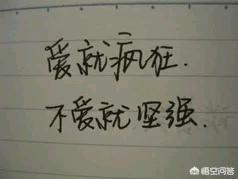 爱就疯狂.
不爱就坚强.
悟空问答